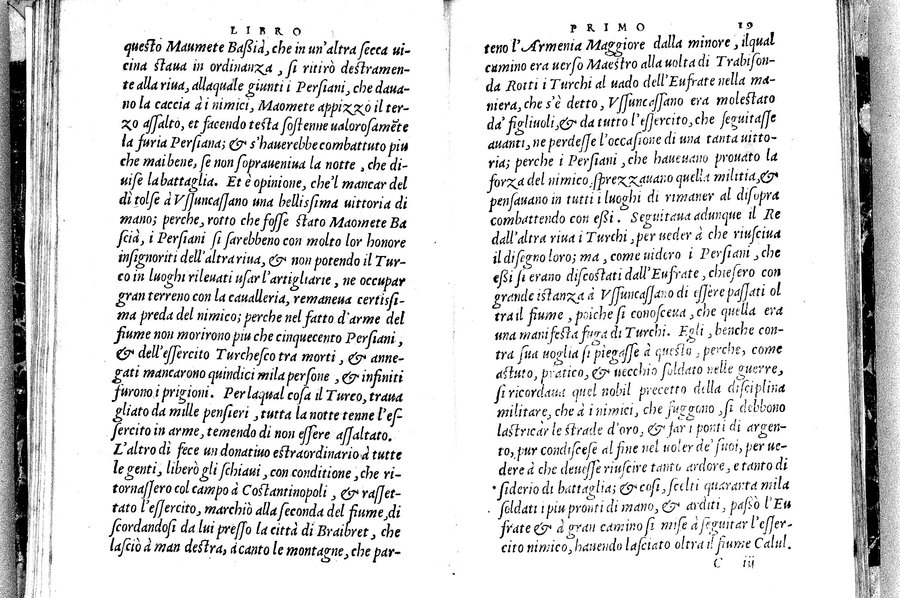 LIBRO
questo Maumete Baßià, che in un'altra secca ui-
cina staua in ordinanza, si ritirò destramen-
te alla riua, allaquale giunti i Persiani, che daua-
no la caccia à i nimici, Maomete appizzò il ter-
zo assalto, et facendo testa sostenne ualorosamẽte
la furia Persiana; & s'hauerebbe combattuto piu
che mai bene, se non sopraueniua la notte, che di-
uise la battaglia. Et è opinione, che'l mancar del
dì tolse à Vssuncassano una bellissima uittoria di
mano; perche, rotto che fosse stato Maomete Ba
scià, i Persiani si sarebbeno con molto lor honore
insignoriti dell'altra riua, & non potendo il Tur-
co in luoghi rileuati usar l'artigliarie, ne occupar
gran terreno con la caualleria, remaneua certissi-
ma preda del nimico; perche nel fatto d'arme del
fiume non morirono piu che cinquecento Persiani,
& dell'essercito Turchesco tra morti, & anne-
gati mancarono quindici mila persone, & infiniti
furono i prigioni. Per laqual cosa il Turco, traua
gliato da mille pensieri, tutta la notte tenne l'es-
sercito in arme, temendo di non essere assaltato.
L'altro dì fece un donatiuo estraordinario à tutte
le genti, liberò gli schiaui, con conditione, che ri-
tornassero col campo à Costantinopoli, & rasset-
tato l'essercito, marchiò alla seconda del fiume, di
scordandosi da lui presso la città di Braibret, che
lasciò à man destra, à canto le montagne, che par-
PRIMO 19
teno l'Armenia Maggiore dalla minore, ilqual
camino era uerso Maestro alla uolta di Trabison-
da Rotti i Turchi al uado dell'Eufrate nella ma-
niera, che s'è detto, Vssuncassano era molestato
da' figliuoli, & da tutto l'essercito, che seguitasse
auanti, ne perdesse l'occasione di una tanta uitto-
ria; perche i Persiani, che haueuano prouato la
forza del nimico, sprezzauano quella militia, &
pensauano in tutti i luoghi di rimaner al disopra
combattendo con essi. Seguitaua adunque il Re
dall'altra riua i Turchi, per ueder à che riusciua
il disegno loro; ma, come uidero i Persiani, che
essi si erano discostati dall'Eufrate, chiesero con
grande istanza à Vssuncassano di essere passati ol
tra il fiume, poiche si conosceua, che quella era
una manifesta fuga di Turchi. Egli, benche con-
tra sua uoglia si piegasse à questo, perche, come
astuto, pratico, & uecchio soldato nelle guerre,
si ricordaua quel nobil precetto della disciplina
militare, che à i nimici, che fuggono, si debbono
lastricar le strade d'oro, & far i ponti di argen-
to, pur condiscese al fine nel uoler de' suoi, per ue-
dere à che deuesse riuscire tanto ardore, e tanto di
siderio di battaglia; & cosi, scelti quaranta mila
soldati i piu pronti di mano, & arditi, passò l'Eu
frate & à gran camino si mise à seguitar l'esser-
cito nimico, hauendo lasciato oltra il fiume Calul.
C iij